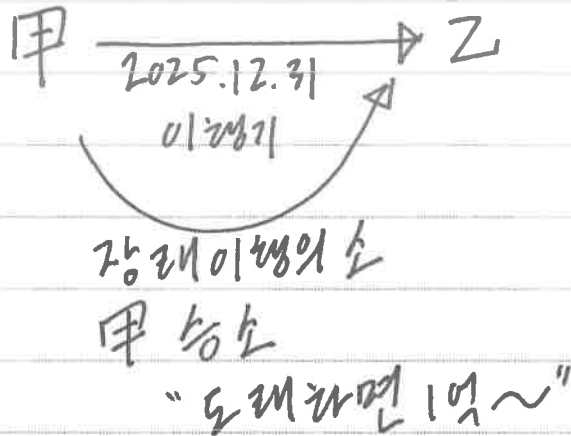 甲 → 乙
2025.12.31
이행기
장래이행의 소
甲 승소
"도래하면 1억~"